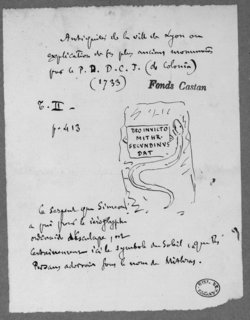 Antiquités de la ville de Lyon ou
explication de ses plus anciens monumens
par le P. D. D. C. J. (de Colonia)
(1733)
Fonds Castan
T. II -
p. 413
DEO INVICTO
MITHR
SECVNDINVS
DAT
Ce serpent que Simeoni
a pris pour le hiéroglyphe
ordinaire d'Esculape, est
certainement ici le symbole du Soleil que les
Persans adoroient sous le nom de Mithras.